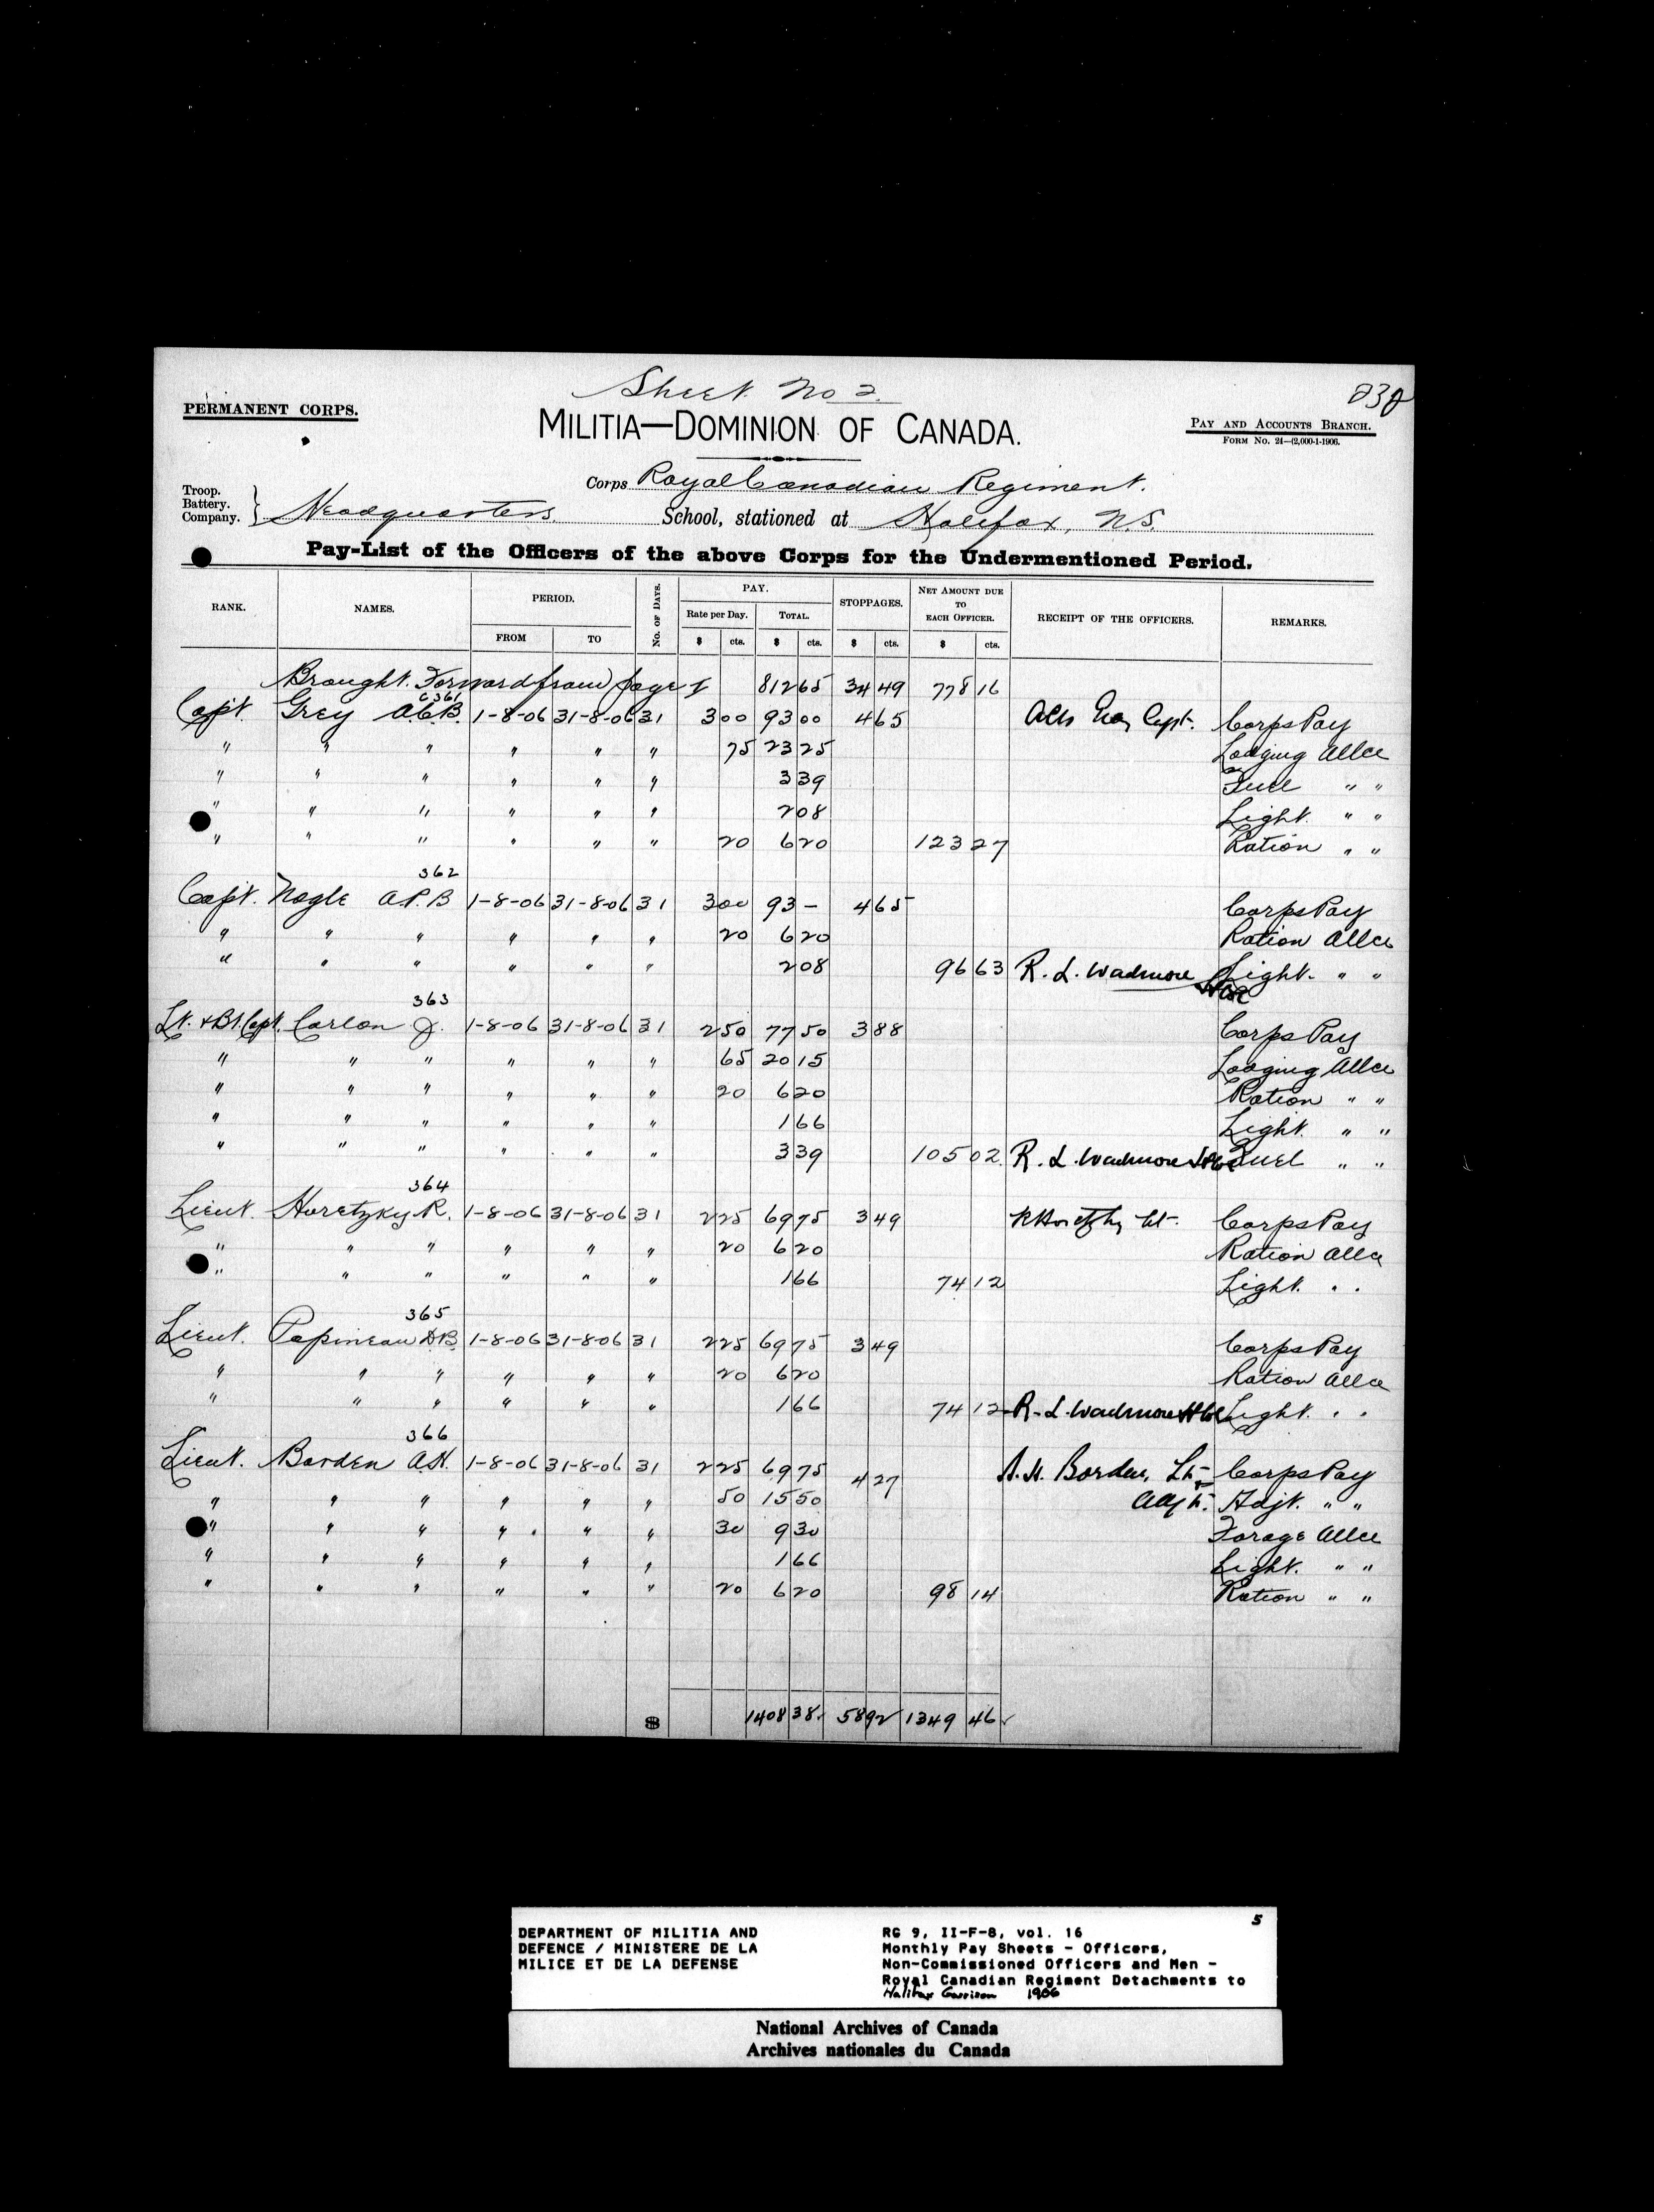 Sheet No 2.
232
PERMANENT CORPS.
MILITIA—DOMINION OF CANADA.
PAY AND ACCOUNTS BRANCH.
FORM No. 24—(2,000-1-1906.
Corps Royal Canadian Regiment.
Troop.
Battery.
Company. } Headquarters. School, stationed at Halifax, N.S.
Pay-List of the Officers of the above Corps for the Undermentioned Period.
RANK. NAMES. PERIOD. No. OF DAYS. PAY. STOPPAGES. NET AMOUNT DUE TO EACH OFFICER. RECEIPT OF THE OFFICERS. REMARKS.
FROM TO Rate per Day. TOTAL.
$ cts. $ cts. $ cts. $ cts.
Brought Forward from page 1 812 65 34 49 778 16
C361
Capt. Grey A.C.B. 1-8-06 31-8-06 31 3 00 93 00 4 65 Capt. Corps Pay
" " " " " " 75 23 25 Lodging Allce
" " " " " " 3 39 Fuel " "
" " " " " " 2 08 Light " "
" " " " " " 20 6 20 123 27 Ration " "
362
Capt. Nagle A.P.B 1-8-06 31-8-06 31 3 00 93 – 4 65 Corps Pay
" " " " " " 20 6 20 Ration Allce
" " " " " " 2 08 96 63 R. L. Wadmore Light. " "
363
Lt. & Bt. Capt. Carlon J. 1-8-06 31-8-06 31 2 50 77 50 3 88 Corps Pay
" " " " " " 65 20 15 Lodging Allce
" " " " " " 20 6 20 Ration " "
" " " " " " 1 66 Light. " "
" " " " " " 3 39 105 02 R. L. Wadmore Fuel " "
364
Lieut. Horetzky R. 1-8-06 31-8-06 31 2 25 69 75 3 49 R Horetzky Lt. Corps Pay
" " " " " " 20 6 20 Ration Allce
" " " " " " 1 66 74 12 Light. " "
365
Lieut. Papineau D.B. 1-8-06 31-8-06 31 2 25 69 75 3 49 Corps Pay
" " " " " " 20 6 20 Ration Allce
" " " " " " 1 66 74 12 R. L. Wadmore Light. " "
366
Lieut. Borden A.H. 1-8-06 31-8-06 31 2 25 69 75 4 27 A. H. Borden, Lt. Corps Pay
" " " " " " 50 15 50 Adjt. Adjt. " "
" " " " " " 30 9 30 Forage Allce
" " " " " " 1 66 Light. " "
" " " " " " 20 6 20 98 14 Ration " "
$ 1408 38 58 92 1349 46
5
DEPARTMENT OF MILITIA AND
DEFENCE / MINISTERE DE LA
MILICE ET DE LA DEFENSE
RG 9, II-F-8, vol. 16
Monthly Pay Sheets - Officers,
Non-Commissioned Officers and Men -
Royal Canadian Regiment Detachments to
Halifax Garrison 1906
National Archives of Canada
Archives nationales du Canada